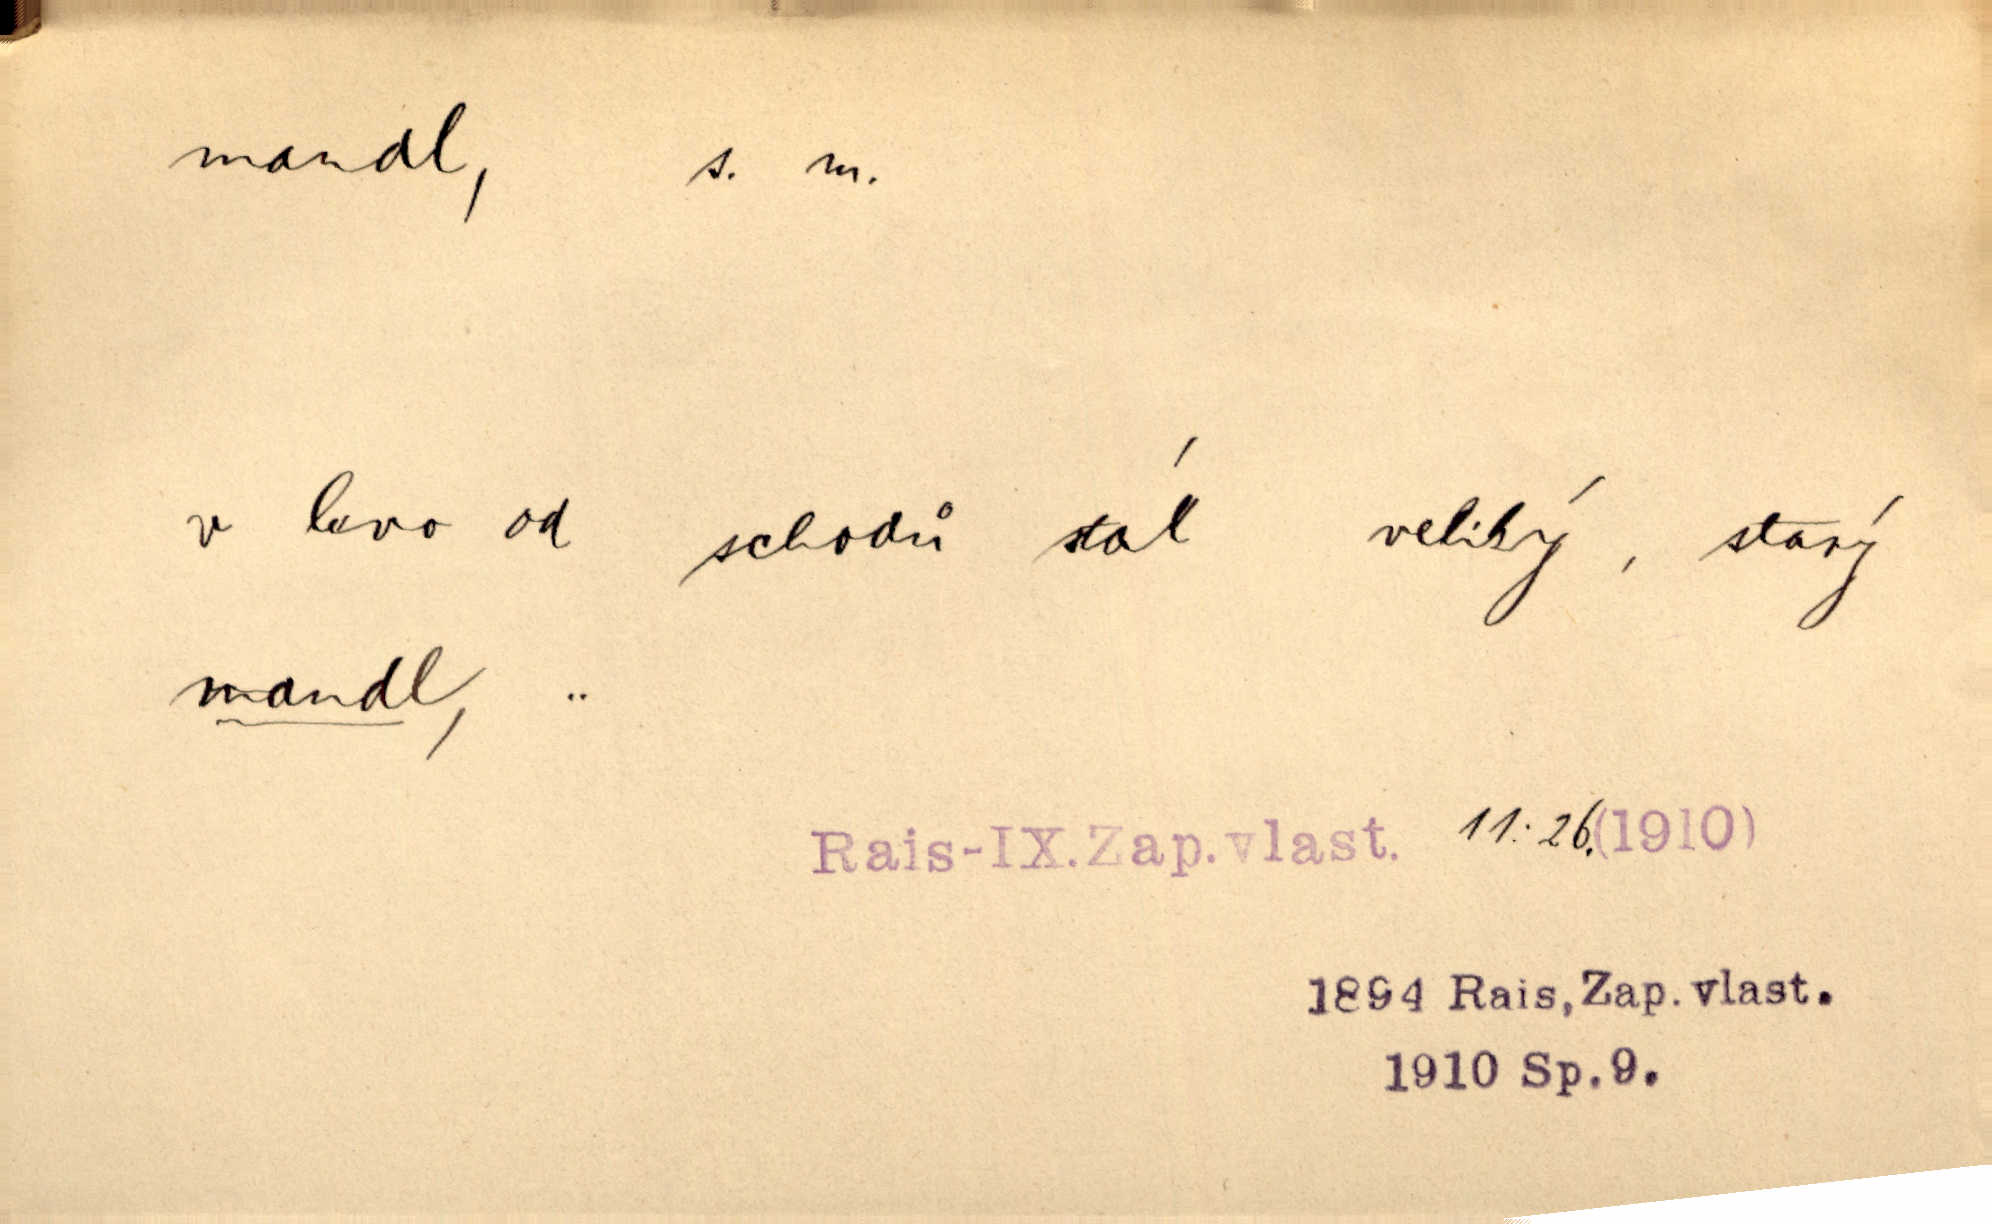 mandl, s. m.
v levo od schodů stál veliký, starý
mandl, ..
Rais-IX.Zap.vlast. 11:26.(1910)
1894 Rais,Zap.vlast.
1910 Sp.9.